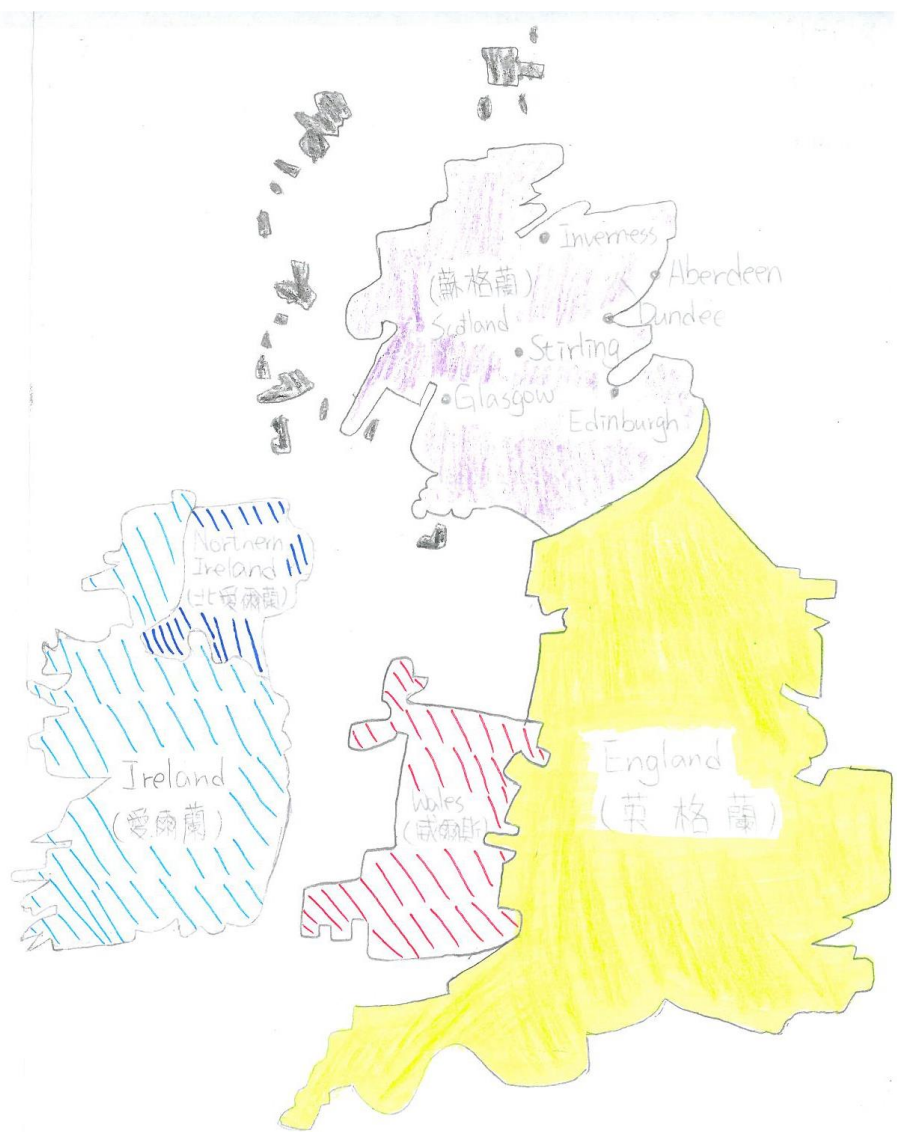 Inverness
Aberdeen
(蘇格蘭)
Scotland
Dundee
Stirling
Glasgow
Edinburgh
Northern
Ireland
(北愛爾蘭)
England
(英格蘭)
Ireland
(愛爾蘭)
Wales
(威爾斯)